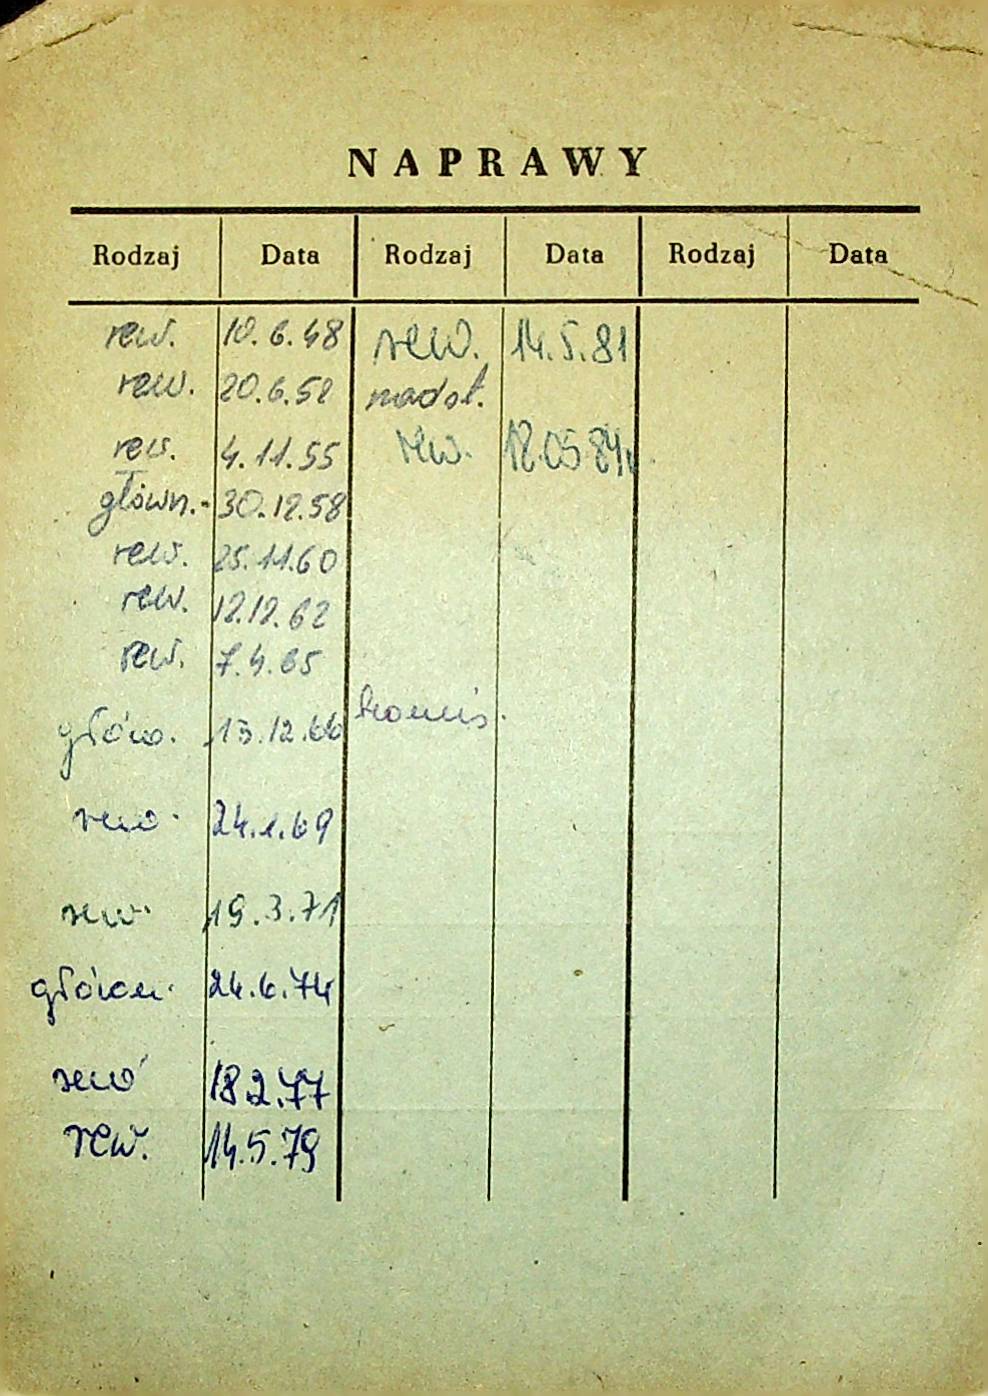 NAPRAWY
Rodzaj Data Rodzaj Data Rodzaj Data
rew. 10.6.48 rew. 14.5.81
rew. 20.6.52 nadst.
rew. 4.11.55 rew. 12.05.84r.
główn. 30.12.58
rew. 25.11.60
rew. 12.12.62
rew. 7.4.65
główn. 13.12.66
rew. 24.1.69
rew. 19.3.71
główn. 24.6.74
rew 18.2.77
rew. 14.5.79